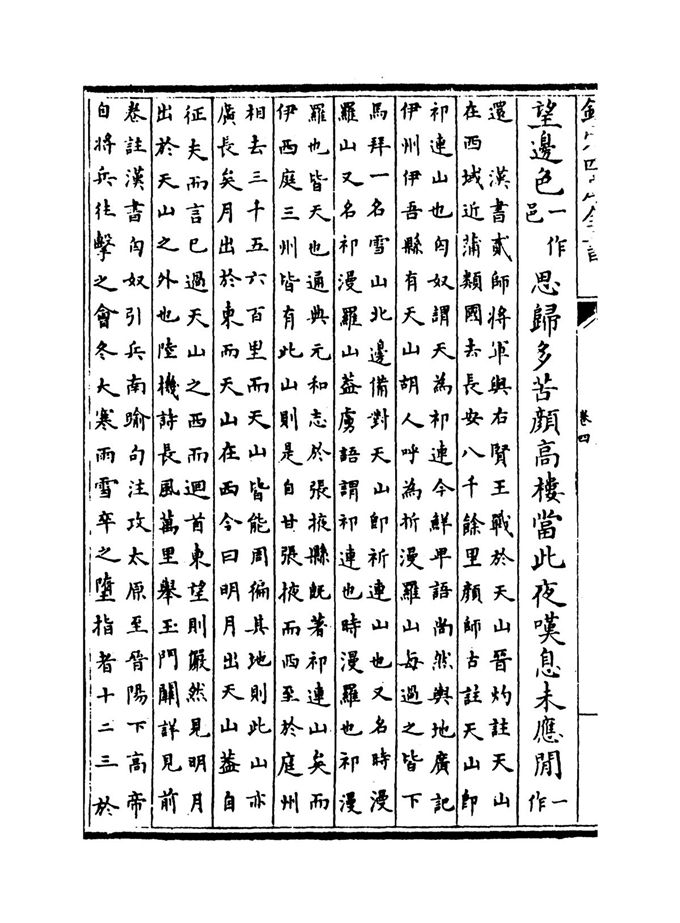 欽定四庫全書
卷四
望邊色一作邑思歸多苦顔高樓當此夜嘆息未應閒一作
還 漢書貳師將軍與右賢王戰於天山晉灼註天山
在西域近蒲類國去長安八千餘里顔師古註天山即
祁連山也匈奴謂天為祁連今鮮卑語尚然與地廣記
伊州伊吾縣有天山胡人呼為折漫羅山每過之皆下
馬拜一名雪山北邊備對天山即祈連山也又名時漫
羅山又名祁漫羅山葢虜語謂祁連也時漫羅也祁漫
羅也皆天也通典元和志於張掖縣既著祁連山矣而
伊西庭三州皆有此山則是自甘張掖而西至於庭州
相去三千五六百里而天山皆能周徧其地則此山亦
廣長矣月出於東而天山在西今曰明月出天山葢自
征夫而言已過天山之西而迴首東望則儼然見明月
出於天山之外也陸機詩長風萬里舉玉門關詳見前
卷註漢書匈奴引兵南踰句注攻太原至晉陽下高帝
自將兵往擊之會冬大寒雨雪卒之墮指者十二三於